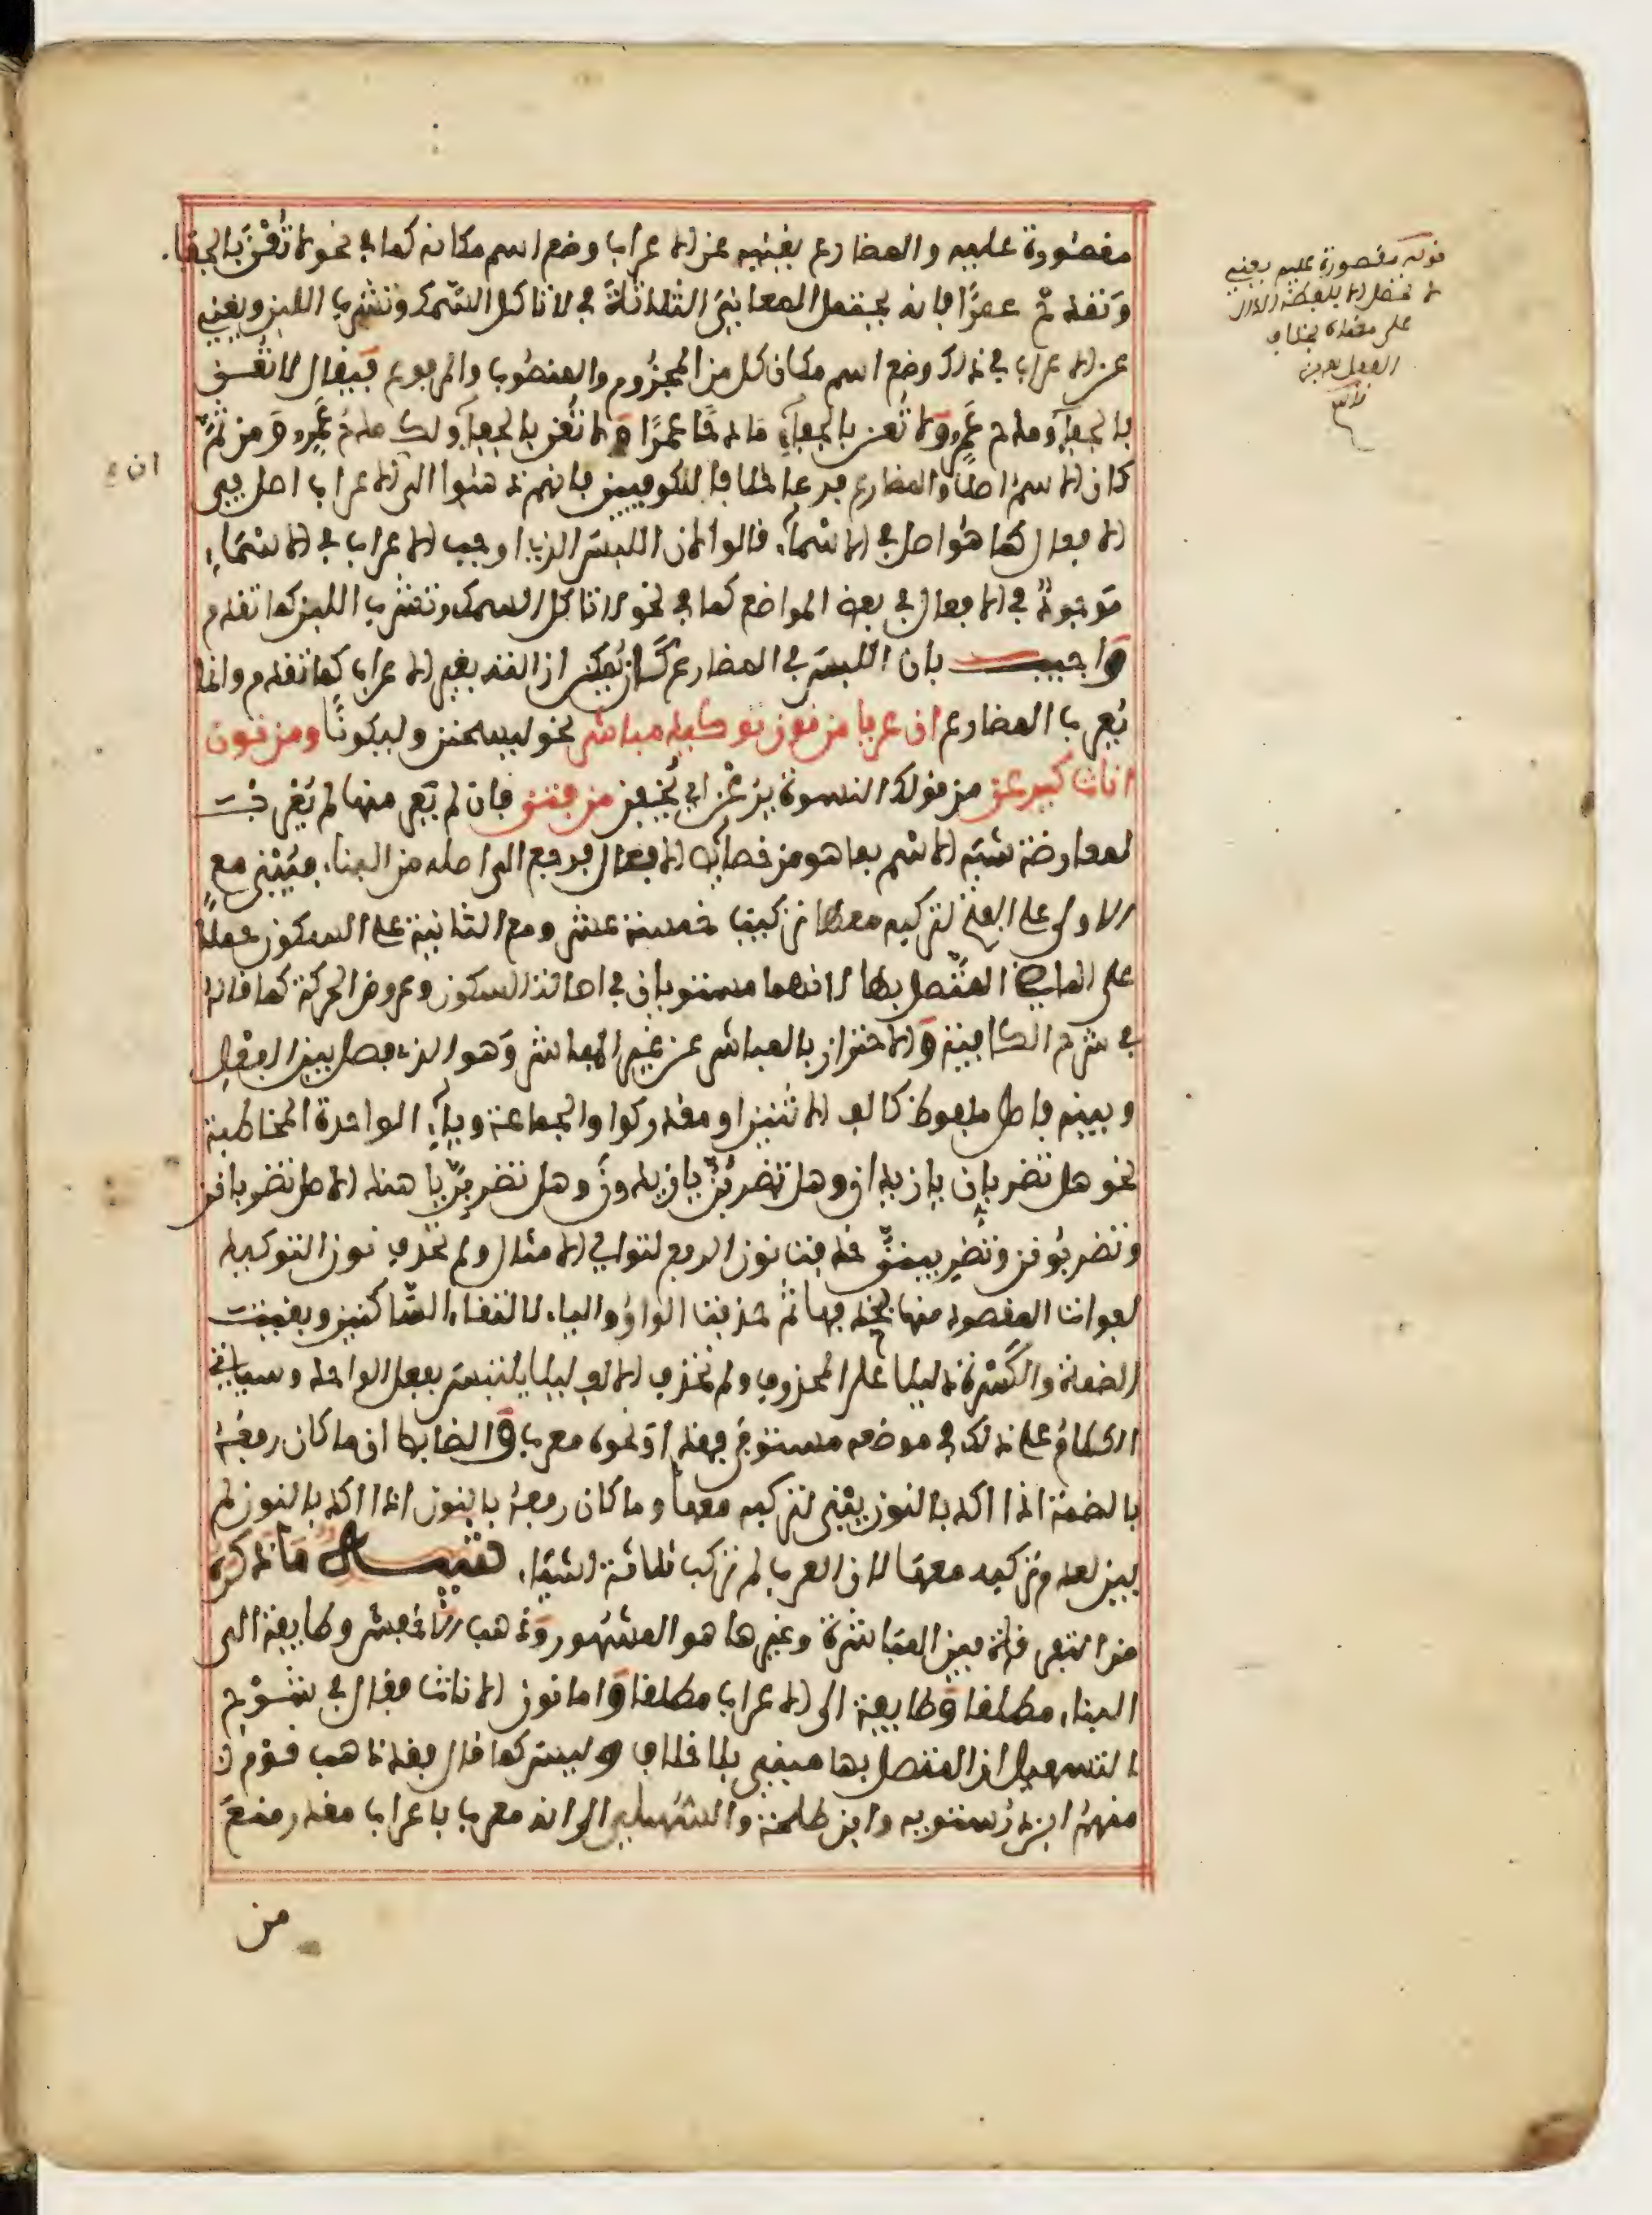 مقصورة عليه والمضارع يغنيه عن الاعراب وضع اسم مكانه كما في نحو لا تُعْنَ بالجفا
وتمدحْ عمرًا فانه يحتمل المعانيَ الثلاثةَ في لا تاكل السّمك وتشرب اللبن ويغنيه
عن الاعراب في ذلك وضع اسم مكان كل من المجزوم والمنصوب والمرفوع فيقال لا تُعْن
بالجفاء ومدح عَمرٍو ولا تُعن بالجفاء مادحًا عمرًا ولا تُعْن بالجفاء ولك مدحُ عَمرٍو ومن ثمَّ
كان الاسم اصلاً والمضارع فرعا خلافا للكوفيين فانهم ذهبوا الى ان الاعراب اصل في
الافعال كما هو اصل في الاسْماء، قالوا لان اللبس الذي اوجب الاعراب في الاسْمَاء
موجودٌ في الافعال في بعض المواضع كما في نحو لا تاكل السمك وتشرب اللبن كما تقدم
واجيب بان اللبس في المضارع كان يُمكن ازالته بغير الاعراب كما تقدم وانما
يُعرب المضارع ان عريا من نون توكيد مباشر نحو ليسجنن وليكونًا ومن نون
اناث كيرعن من قولك النسوة يرعْن اي يُخِفن من فتن فان لم يَعْر منها لم يُعْرب
لمعارضة شبَه الاسْم بما هو من خصائص الافعال فرجع الى اصله من البناء، فيُبْنى مع
الاولى على الفتح لتركيبه معها تركيب خمسة عشر ومع الثانية على السكون حملًا
على الماضي المتَّصل بها لانهما مستويان في اصالة السكون وعروض الحركة كما قاله
في شرح الكافية والاحتراز بالمباشر عن غير المباشر وهو الذي فصل بين الفعل
وبينه فاصل ملفوظ كالف الاثنين او مقدر كواو الجماعة وياء الواحدة المخاطبة
نحو هل تضربانِّ يا زيدان وهل تضربُنّ يا زيدون وهل تضربِنّ يا هند الاصل تضرباننّ
وتضربُوننّ وتضرِبيننّ حذفت نون الرفع لتوالي الامثال ولم تحذف نون التوكيد
لفوات المقصود منها بحذفها ثم حذفت الواوُ والياء، لالتقاء السّاكنين وبقيت
الضمة والكسْرة دليلا على المحذوف ولم تحذف الالف ليلا يلتبس بفعل الواحد وسياتي
الكلامُ على ذلك في موضعه مستوفى فهذا ونحوه معرب والضابط ان ما كان رفعُهُ
بالضمة اذا اكد بالنون يُبنى لتركيبه معها وما كان رفعهُ بالنون اذا اكد بالنون لم
يبن لعدم تركيبه معها لان العرب لم تركب ثلاثة اشيا، تنبيه مَا ذكره
من التفرقة بين المبَاشرة وغيرها هو المشهور وذهب الاخفش وطايفة الى
البناء، مطلقا وطايفة الى الاعراب مطلقا واما نون الاناث فقال في شرْح
التسهيل ان المتصل بها مبني بلا خلاف وليس كما قال فقد ذهب قومٌ
منهم ابن دُرستويه وابن طلحة والسُّهيلي الى انه معرب باعراب مقدر منعَ
من

قوله مقصورة عليه يعني
لا تحصل الا بلفظه الدال
على معناه بخلاف
الفعل